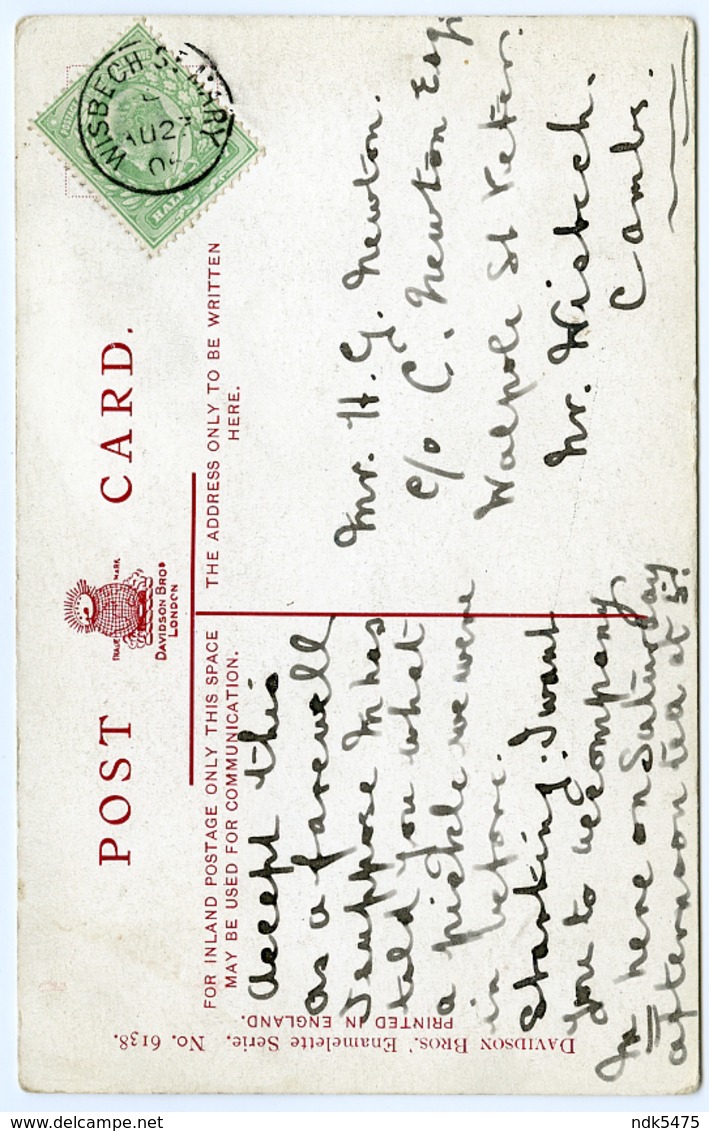 POST CARD.
TRADE MARK
DAVIDSON BROS
LONDON
FOR INLAND POSTAGE ONLY THIS SPACE
MAY BE USED FOR COMMUNICATION.
THE ADDRESS ONLY TO BE WRITTEN
HERE.
WISBECH ST MARY
AU 27
HALF
Accept this
as a farewell
I suppose M has
told you what
a pickle we were
in before.
Starting. I want
you to accompany
M here on Saturday
afternoon tea at 5!
Mr. H. G. Newton.
c/o C. Newton Esq
Walpole St Peter.
Nr. Wisbech.
Cambs.
DAVIDSON BROS.' ENAMELETTE SERIE. NO. 6138.
PRINTED IN ENGLAND.
delcampe.net
ndk5475